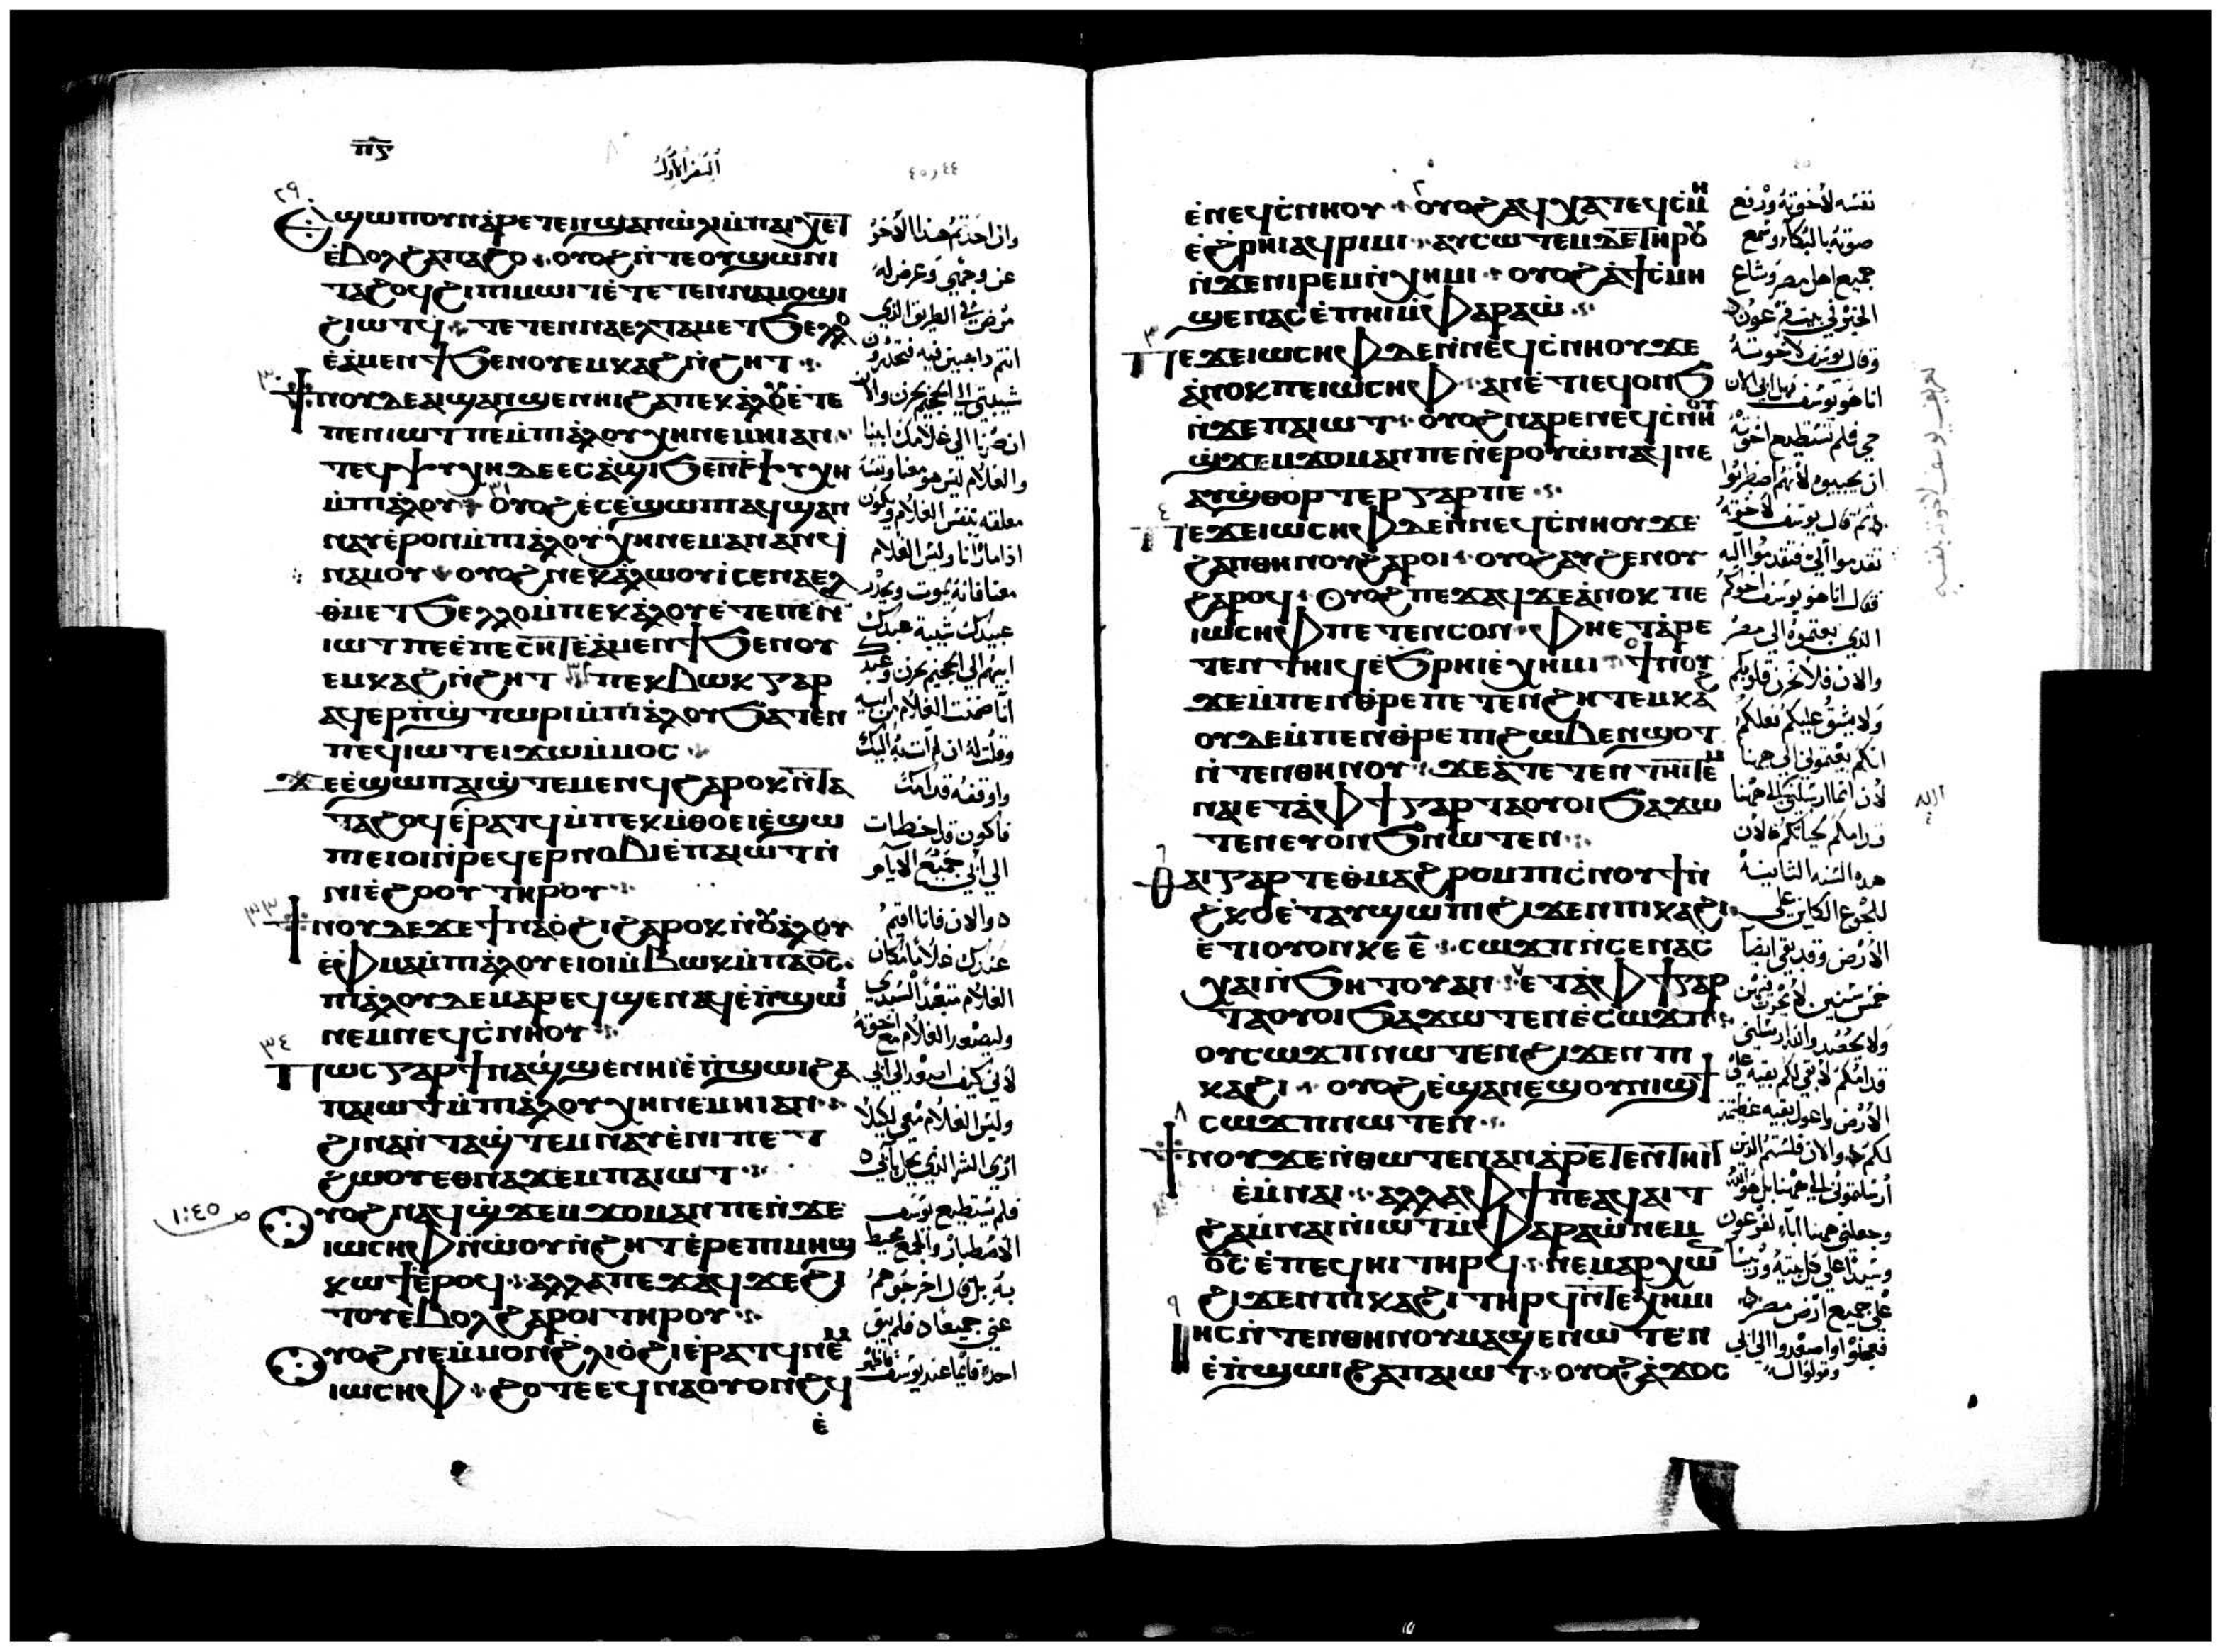 ⲡ̅ⲋ̅
السفر الاول
٤٤ و ٤٥
٢٩
Ⲉϣⲱⲡ ⲟⲩⲛ ⲁⲣⲉⲧⲉⲛϣⲁⲛⲱⲗⲓ ⲙ̀ⲡⲁⲓⲭⲉⲧ
ⲉ̀ⲃⲟⲗϩⲁ ⲡⲁϩⲟ ⲟⲩⲟϩ ⲛ̀ⲧⲉ ⲟⲩϣⲱⲛⲓ
ⲧⲁϩⲟϥ ϩⲓ ⲡⲓⲙⲱⲓⲧ ⲉ̀ⲧⲉⲧⲉⲛⲛⲁⲙⲟϣⲓ
ϩⲓⲱⲧϥ ⲧⲉⲧⲉⲛⲛⲁⲉⲗ ⲧⲁⲙⲉⲧϧⲉⲗⲗⲟ
ⲉ̀ⲁⲙⲉⲛϯ ϧⲉⲛ ⲟⲩⲉⲙⲕⲁϩ ⲛ̀ϩⲏⲧ
ϯⲛⲟⲩ ⲇⲉ ⲁⲓϣⲁⲛϣⲉⲛⲏⲓ ϩⲁ ⲡⲉⲕⲁⲗⲟⲩ ⲉ̀ⲧⲉ
ⲡⲉⲛⲓⲱⲧ ⲡⲉ ⲙ̀ⲡⲓⲁⲗⲟⲩ ⲭⲏ ⲛⲉⲙⲏⲓ ⲁⲛ
ⲧⲉϥⲯⲩⲭⲏ ⲇⲉ ⲉⲥⲁϣⲓ ϧⲉⲛ ⲧⲯⲩⲭⲏ
ⲙ̀ⲡⲓⲁⲗⲟⲩ ⲟⲩⲟϩ ⲉⲥⲉ̀ϣⲱⲡⲓ ⲁϥϣⲁⲛ
ⲛⲁⲩ ⲉ̀ⲣⲟⲛ ⲙ̀ⲡⲓⲁⲗⲟⲩ ⲭⲏ ⲛⲉⲙⲁⲛ ⲁⲛ ϥ
ⲛⲁⲙⲟⲩ ⲟⲩⲟϩ ⲛⲉⲕⲁⲗⲱⲟⲩⲓ̀ ⲥⲉⲛⲁⲉⲗ
ⲑⲙⲉⲧϧⲉⲗⲗⲟ ⲙ̀ⲡⲉⲕⲁⲗⲟⲩ ⲉ̀ⲧⲉ ⲡⲉⲛ
ⲓⲱⲧ ⲡⲉ ⲉ̀ⲡⲉⲥⲏⲧ ⲉ̀ⲁⲙⲉⲛϯ ϧⲉⲛ ⲟⲩ
ⲉⲙⲕⲁϩ ⲛ̀ϩⲏⲧ ⲡⲉⲕⲃⲱⲕ ⲅⲁⲣ
ⲁϥⲉⲣⲡ̀ϣⲧⲱⲣⲓ ⲙ̀ⲡⲓⲁⲗⲟⲩ ϧⲁⲧⲉⲛ
ⲡⲉϥⲓⲱⲧ ⲉⲓϫⲱ ⲙ̀ⲙⲟⲥ
ϫⲉ ⲉ̀ϣⲱⲡ ⲁⲓϣ̀ⲧⲉⲙⲉⲛϥ ϩⲁⲣⲟⲕ ⲛ̀ⲧⲁ
ⲧⲁϩⲟϥ ⲉ̀ⲣⲁⲧϥ ⲙ̀ⲡⲉⲕⲙ̀ⲑⲟ ⲉⲓⲉ̀ϣⲱ
ⲡⲓ ⲉⲓⲟⲓ ⲛ̀ⲣⲉϥⲉⲣⲛⲟⲃⲓ ⲉ̀ⲡⲁⲓⲱⲧ ⲛ̀
ⲛⲓⲉ̀ϩⲟⲟⲩ ⲧⲏⲣⲟⲩ
٣٣
ϯⲛⲟⲩ ⲇⲉ ϫⲉ ϯⲛⲁⲟ̀ϩⲓ ϩⲁⲣⲟⲕ ⲛ̀ⲟⲩⲁⲗⲟⲩ
ⲉ̀ⲫⲙⲁ ⲙ̀ⲡⲓⲁⲗⲟⲩ ⲉⲓⲟⲓ ⲙ̀ⲃⲱⲕ ⲙ̀ⲡⲁϭⲥ
ⲡⲓⲁⲗⲟⲩ ⲇⲉ ⲙⲁⲣⲉϥϣⲉⲛⲁϥ ⲉ̀ⲡϣⲱⲓ
ⲛⲉⲙ ⲛⲉϥⲥ̀ⲛⲏⲟⲩ
٣٤
Ⲡⲱⲥ ⲅⲁⲣ ϯⲛⲁϣ̀ϣⲉⲛⲏⲓ ⲉ̀ⲡϣⲱⲓ ϩⲁ
ⲡⲁⲓⲱⲧ ⲙ̀ⲡⲓⲁⲗⲟⲩ ⲭⲏ ⲛⲉⲙⲏⲓ ⲁⲛ
ϩⲓⲛⲁ ⲛ̀ⲧⲁϣ̀ⲧⲉⲙⲛⲁⲩ ⲉ̀ⲛⲓⲡⲉⲧ
ϩⲱⲟⲩ ⲉⲑⲛⲁϫⲉⲙ ⲡⲁⲓⲱⲧ
١:٤٥
Ⲟⲩⲟϩ ⲛⲁϥϣ̀ϫⲉⲙϫⲟⲙ ⲁⲛ ⲡⲉ ⲛ̀ϫⲉ
ⲓⲱⲥⲏⲫ ⲛ̀ⲱⲟⲩⲛ̀ϩⲏⲧ ⲉ̀ⲣⲉ ⲡⲓⲙⲏϣ
ⲕⲱϯ ⲉ̀ⲣⲟϥ ⲁⲗⲗⲁ ⲡⲉϫⲁϥ ϫⲉ ϩⲓ
ⲧⲟⲩ ⲉ̀ⲃⲟⲗϩⲁⲣⲟⲓ ⲧⲏⲣⲟⲩ
Ⲟⲩⲟϩ ⲛⲉ ⲙ̀ⲙⲟⲛ ϩ̀ⲗⲓ ⲟ̀ϩⲓ ⲉ̀ⲣⲁⲧϥ ⲛⲉⲙ
ⲓⲱⲥⲏⲫ ϩⲟⲧⲉ ⲉϥⲛⲁⲟⲩⲟⲛϩϥ
ⲉ̀
وان اخذتم هذا الاخر
عن وجهي وعرض له
مرض في الطريق الذي
انتم ذاهبين فيه فتحدرون
شيبتي الى الجحيم بحزن والان
ان صرنا الى غلامك ابينا
والغلام ليس هو معنا ونفسه
معلقه بنفس الغلام ويكون
اذا ما رانا وليس الغلام
معنا فانه يموت ويحدر
عبيدك شيبة عبدك
ابيهم الى الجحيم بحزن وعبدك
انا ضمنت الغلام من ابيه
وقلت له ان لم ات به اليك
واوقفه قدامك
فاكون قد اخطات
الى ابي جميع الايام
والان فانا اقيم
عندك غلاما مكان
الغلام متعبدا لسيدي
وليصعد الغلام مع اخوته
لاني كيف اصعد الى ابي
وليس الغلام معي لكيلا
ارى الشر الذي يحل بابي
فلم يستطيع يوسف
الاصطبار والجمع محيط
به بل قال اخرجوهم
عني جميعا فلم يبق
احد قائما عند يوسف
٤٥
ⲉ̀ⲛⲉϥⲥ̀ⲛⲏⲟⲩ ⲟⲩⲟϩ ⲁϥⲭⲁ ⲧⲉϥⲥ̀ⲙⲏ
ⲉ̀ϩⲣⲏⲓ ⲁϥⲣⲓⲙⲓ ⲁⲩⲥⲱⲧⲉⲙ ⲇⲉ ⲧⲏⲣⲟⲩ
ⲛ̀ϫⲉ ⲛⲓⲣⲉⲙⲛ̀ⲭⲏⲙⲓ ⲟⲩⲟϩ ⲁ̀ϯⲥ̀ⲙⲏ
ϣⲉⲛⲁⲥ ⲉ̀ⲡⲏⲓ ⲙ̀ⲫⲁⲣⲁⲱ̀
٣
Ⲡⲉϫⲉ ⲓⲱⲥⲏⲫ ⲇⲉ ⲛ̀ⲛⲉϥⲥ̀ⲛⲏⲟⲩ ϫⲉ
ⲁ̀ⲛⲟⲕ ⲡⲉ ⲓⲱⲥⲏⲫ ⲁⲛ ⲉ̀ⲧⲓ ϥⲟⲛϧ
ⲛ̀ϫⲉ ⲡⲁⲓⲱⲧ ⲟⲩⲟϩ ⲛⲁⲣⲉ ⲛⲉϥⲥ̀ⲛⲏⲟⲩ
ϣ̀ϫⲉⲙϫⲟⲙ ⲁⲛ ⲡⲉ ⲛ̀ⲉⲣⲟⲩⲱ̀ ⲛⲁϥ ⲛⲉ
ⲁⲩϣ̀ⲑⲟⲣⲧⲉⲣ ⲅⲁⲣ ⲡⲉ
٤
Ⲡⲉϫⲉ ⲓⲱⲥⲏⲫ ⲇⲉ ⲛ̀ⲛⲉϥⲥ̀ⲛⲏⲟⲩ ϫⲉ
ϧⲁⲛⲑⲏⲛⲟⲩ ϩⲁⲣⲟⲓ ⲟⲩⲟϩ ⲁⲩϧⲉⲛⲟⲩ
ϩⲁⲣⲟϥ ⲟⲩⲟϩ ⲡⲉϫⲁϥ ϫⲉ ⲁ̀ⲛⲟⲕ ⲡⲉ
ⲓⲱⲥⲏⲫ ⲡⲉⲧⲉⲛⲥⲟⲛ ⲫⲏ ⲉⲧⲁⲣⲉ
ⲧⲉⲛⲧⲏⲓϥ ⲉ̀ϧⲣⲏⲓ ⲉ̀ⲭⲏⲙⲓ ϯⲛⲟⲩ
ϫⲉ ⲙ̀ⲡⲉⲛⲑⲣⲉ ⲡⲉⲧⲉⲛϩⲏⲧ ⲉⲙⲕⲁϩ
ⲟⲩⲇⲉ ⲙ̀ⲡⲉⲛⲑ̀ⲣⲉ ⲡⲓϩⲱⲃ ⲉⲛϣⲟⲧ
ⲛ̀ⲧⲉⲛⲑⲏⲛⲟⲩ ϫⲉ ⲁ̀ⲧⲉⲧⲉⲛⲧⲏⲓⲧ ⲉ̀ⲙ
ⲛⲁⲓ ⲉⲧⲁⲫϯ ⲅⲁⲣ ⲧⲁⲟⲩⲟⲓ ϧⲁϫⲱ
ⲧⲉⲛ ⲉⲩⲱⲛϧ ⲛⲱⲧⲉⲛ
٦
Ⲑⲁⲓ ⲅⲁⲣ ⲧⲉ ⲑⲙⲁϩⲣⲟⲙⲡⲓ ⲥ̀ⲛⲟⲩϯ ⲛ̀
ϩ̀ⲕⲟ ⲉ̀ⲧⲁⲩϣⲱⲡⲓ ϩⲓϫⲉⲛ ⲡⲓⲕⲁϩⲓ
ⲉ̀ⲧⲓ ⲟⲩⲟⲛ ⲕⲉ ⲉ̅ ⲥⲱϫⲡ ⲛ̀ⲥⲉⲛⲁⲥ
ⲭⲁⲓ ⲛ̀ϧⲏⲧⲟⲩ ⲁⲛ ⲉⲧⲁⲫϯ ⲅⲁⲣ
ⲧⲁⲟⲩⲟⲓ ϧⲁϫⲱⲧⲉⲛ ⲉ̀ⲥⲱϫⲡ
ⲟⲩⲥⲱϫⲡ ⲛⲱⲧⲉⲛ ϩⲓϫⲉⲛ ⲡⲓ
ⲕⲁϩⲓ ⲟⲩⲟϩ ⲉ̀ϣⲁⲛⲉϣ ⲟⲩⲛⲓϣϯ
ⲥⲱϫⲡ ⲛⲱⲧⲉⲛ
٨
ϯⲛⲟⲩ ϫⲉ ⲛ̀ⲑⲱⲧⲉⲛ ⲁⲛ ⲁⲣⲉⲧⲉⲛⲧⲏⲓⲧ
ⲉ̀ⲙⲛⲁⲓ ⲁⲗⲗⲁ ⲫϯ ⲡⲉ ⲁϥⲁⲓⲧ
ϩⲁⲙⲛⲁⲓ ⲛ̀ⲓⲱⲧ ⲙ̀ⲫⲁⲣⲁⲱ̀ ⲛⲉⲙ
ϭⲥ ⲉ̀ⲡⲉϥⲏⲓ ⲧⲏⲣϥ ⲛⲉⲙ ⲁⲣⲭⲱⲛ
ϩⲓϫⲉⲛ ⲡⲓⲕⲁϩⲓ ⲧⲏⲣϥ ⲛ̀ⲧⲉ ⲭⲏⲙⲓ
٩
Ⲓⲏⲥ ⲛ̀ⲧⲉⲛⲑⲏⲛⲟⲩ ⲙⲁϣⲉⲛⲱⲧⲉⲛ
ⲉ̀ⲡϣⲱⲓ ϩⲁ ⲡⲁⲓⲱⲧ ⲟⲩⲟϩ ⲁ̀ϫⲟⲥ
نفسه لاخوته ورفع
صوته بالبكاء وسمع
جميع اهل مصر وشاع
الخبر في بيت فرعون
وقال يوسف لاخوته
انا هو يوسف هل ابي الان
حي فلم تستطيع اخوته
ان يجيبوه لانهم اضطربوا
ثم قال يوسف لاخوته
تقدموا الي فتقدموا اليه
فقال انا هو يوسف اخوكم
الذي بعتموه الى مصر
والان فلا تحزن قلوبكم
ولا يشق عليكم فعلكم
انكم بعتموني الى ههنا
لان الله ارسلني الى ههنا
قدامكم لحياتكم لان
هذه السنه الثانية
للجوع الكاين على
الارض وقد بقي ايضا
خمس سنين لا يحرث فيهن
ولا يحصد والله ارسلني
قدامكم لابقي لكم بقيه على
الارض واعول بقيه عظيمة
لكم والان فلستم الذين
ارسلتموني الى ههنا بل هو الله
وجعلني ههنا ابا لفرعون
وسيدا على كل بيته ورئيسا
على جميع ارض مصر
فعجلوا واصعدوا الى ابي
وقولوا له
تعريف يوسف لاخوته بنفسه